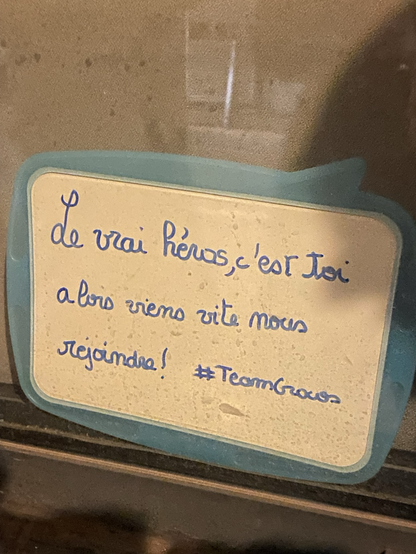 Le vrai héros, c'est Toi
alors viens vite nous
rejoindre! #TeamGrows